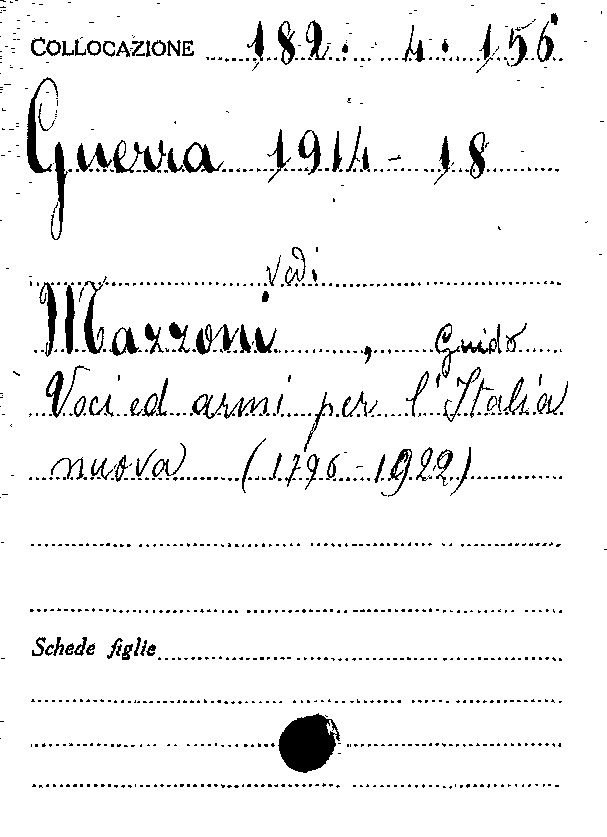 COLLOCAZIONE 182. 4. 156
Guerra 1914-18
vedi
Mazzoni, Guido
Voci ed armi per l'Italia
nuova (1796-1922)
Schede figlie